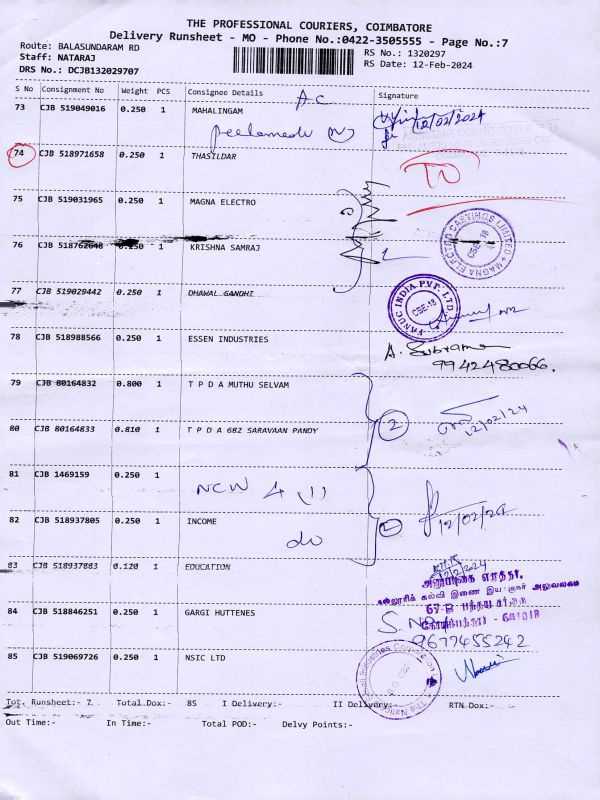 THE PROFESSIONAL COURIERS, COIMBATORE
Delivery Runsheet - MO - Phone No.:0422-3505555 - Page No.:7
Route: BALASUNDARAM RD
RS No.: 1320297
Staff: NATARAJ
RS Date: 12-Feb-2024
DRS No.: DCJB132029707
S No Consignment No Weight PCS Consignee Details Signature
A.C
73 CJB 519049016 0.250 1 MAHALINGAM
12/02/2024
74 CJB 518971658 0.250 1 THASILDAR
75 CJB 519031965 0.250 1 MAGNA ELECTRO
MAGNA ELECTRO CASTINGS LIMITED
CBE-18
76 CJB 518762648 0.250 1 KRISHNA SAMRAJ
77 CJB 519029442 0.250 1 DHAWAL GANDHI
FANUC INDIA PVT. LTD.
CBE-18
78 CJB 518988566 0.250 1 ESSEN INDUSTRIES
A. Subraman
9942480066.
79 CJB 80164832 0.800 1 T P D A MUTHU SELVAM
2
12/02/24
80 CJB 80164833 0.810 1 T P D A 682 SARAVAAN PANDY
81 CJB 1469159 0.250 1
NCW 4 (1)
12/02/24
82 CJB 518937805 0.250 1 INCOME
do
83 CJB 518937883 0.120 1 EDUCATION
12/2/24
கல்லூரிக் கல்வி இணை இயக்குநர் அலுவலகம்
641018
84 CJB 518846251 0.250 1 GARGI HUTTENES
9677455242
85 CJB 519069726 0.250 1 NSIC LTD
Tot. Runsheet:- 7 Total Dox:- 85 I Delivery:- II Delivery:- RTN Dox:-
Out Time:- In Time:- Total POD:- Delvy Points:-